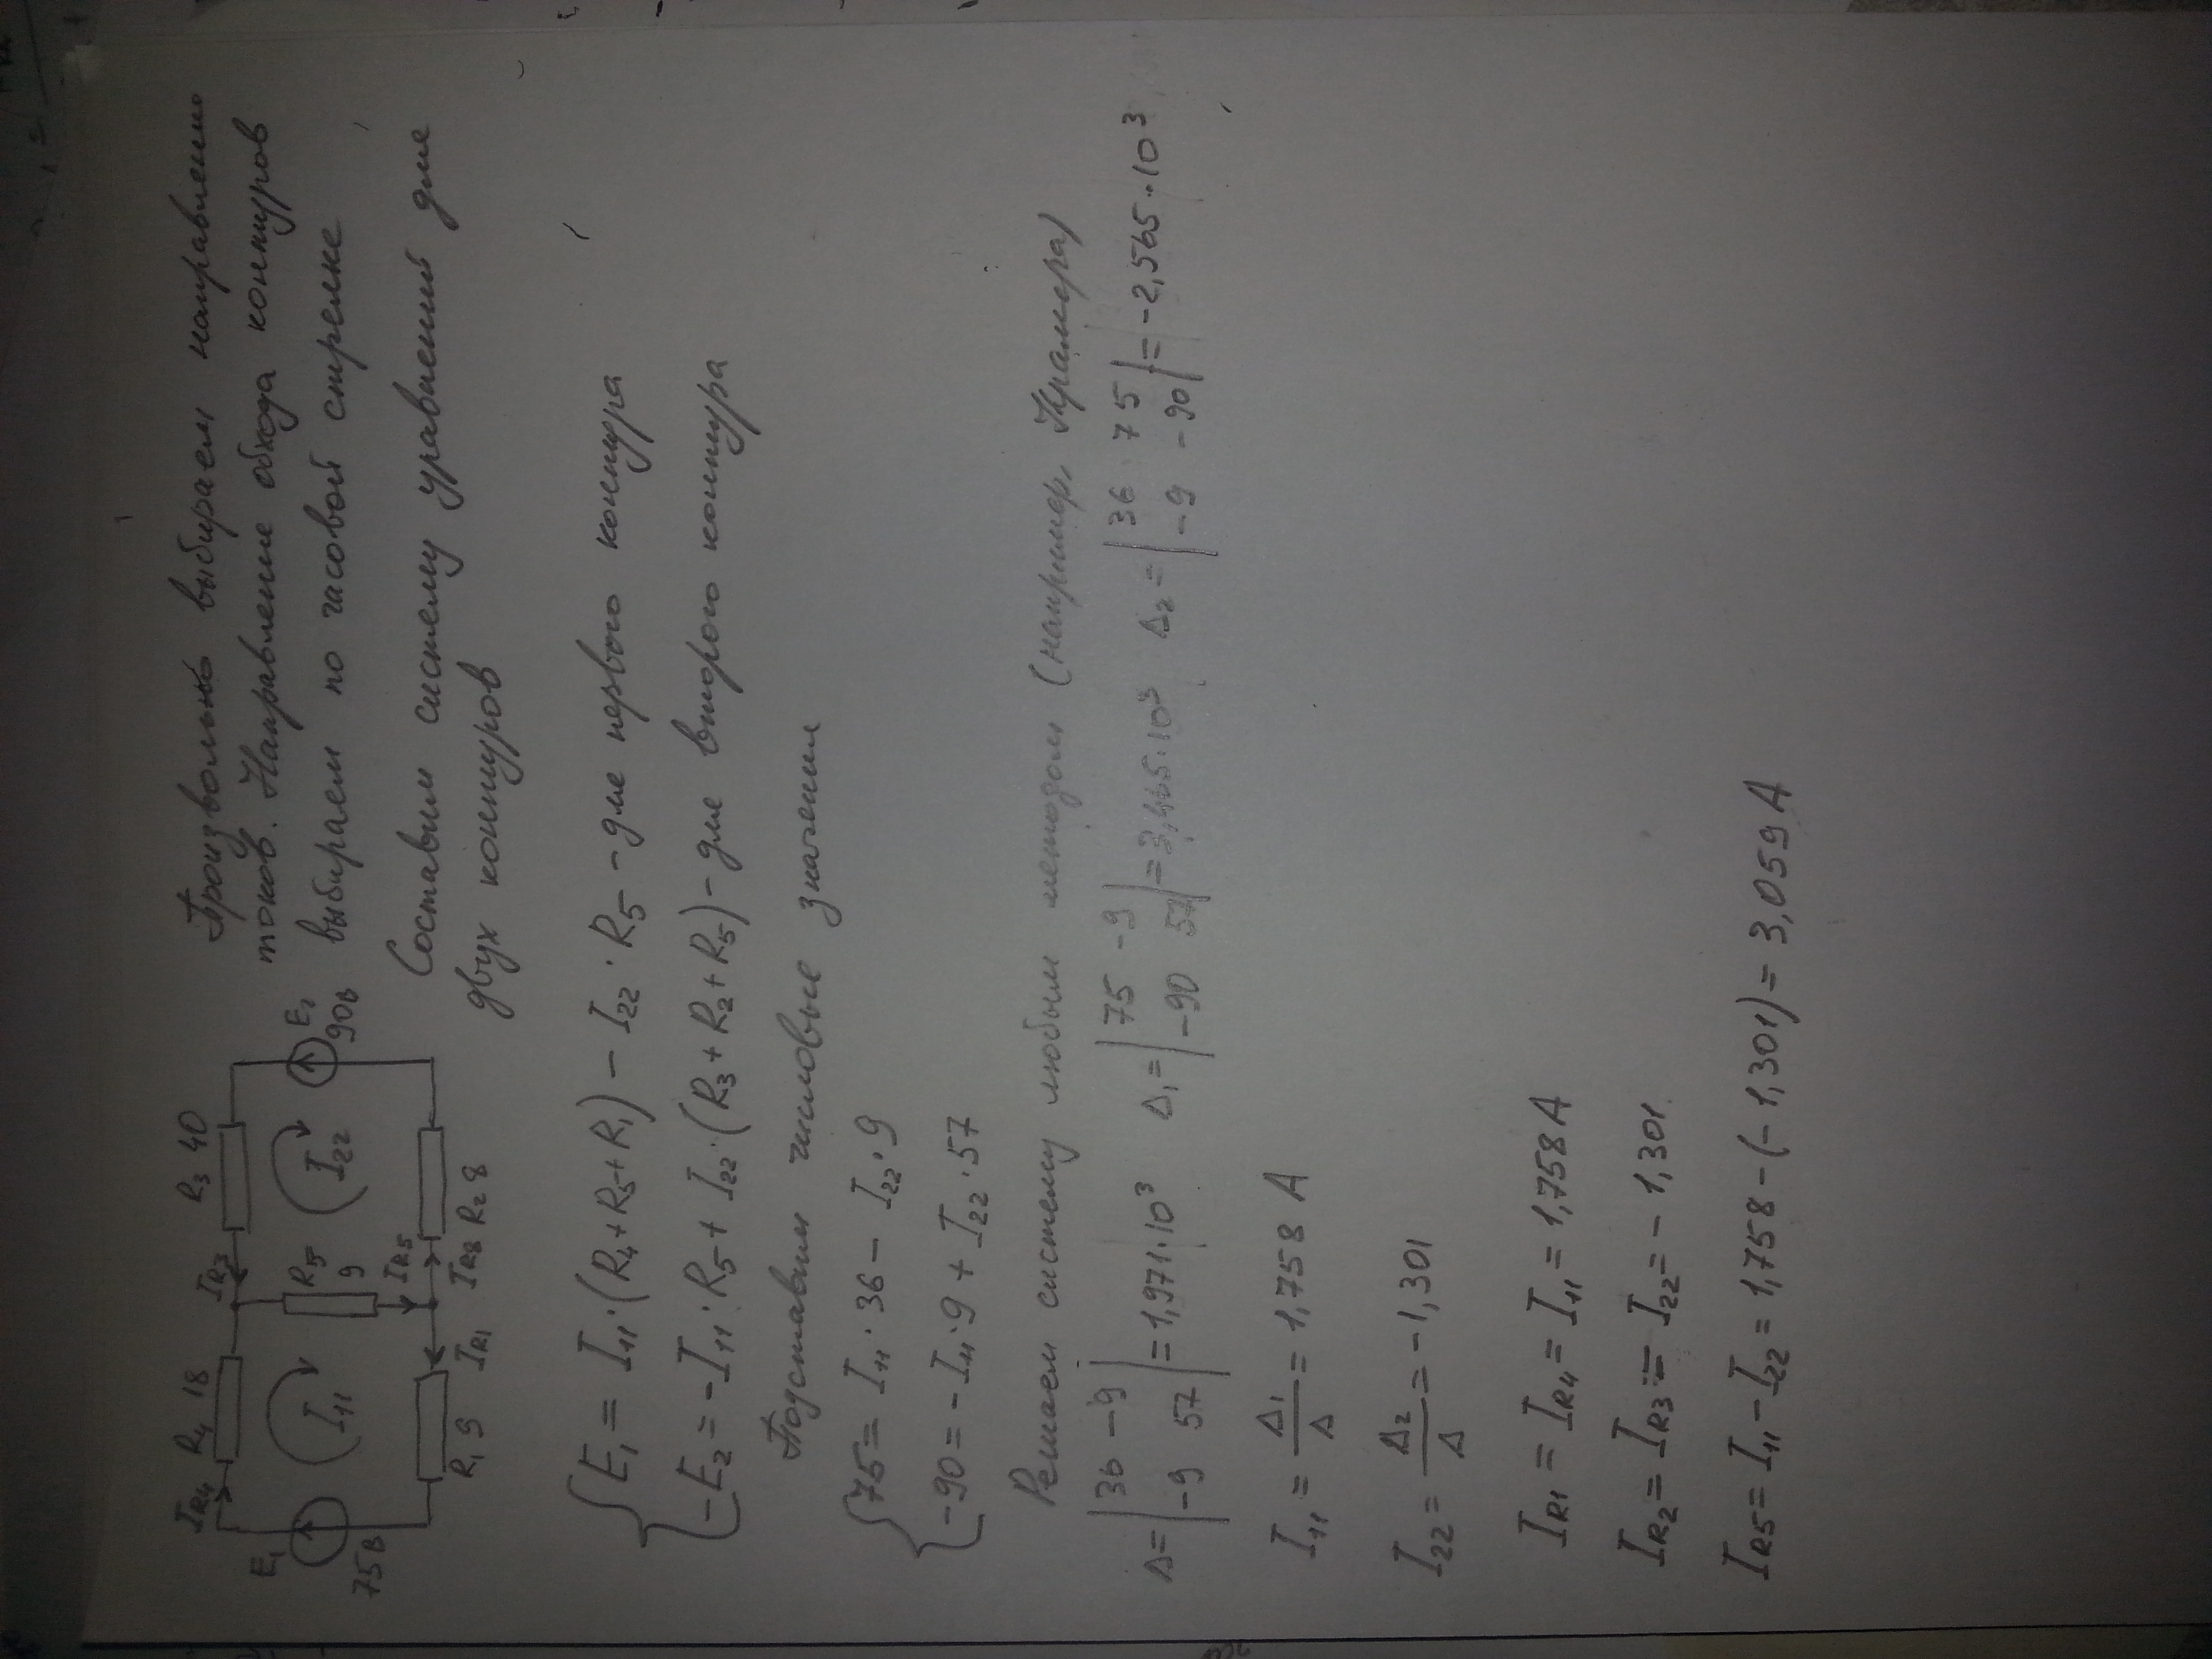 E₁ 75В
I_R4 R₄ 18
I₁₁
R₁ 9 I_R1
I_R3
R₅ 9
I_R5
R₃ 40
I₂₂
I_R8 R₂ 8
E₂ 90В
Произвольно выбираем направлению
токов. Направление обхода контуров
выбираем по часовой стрелке
Составим систему уравнений для
двух контуров
E₁ = I₁₁·(R₄+R₅+R₁) − I₂₂·R₅ - для первого контура
−E₂ = −I₁₁·R₅ + I₂₂·(R₃+R₂+R₅) - для второго контура
Подставим числовые значения
75 = I₁₁·36 − I₂₂·9
−90 = −I₁₁·9 + I₂₂·57
Решаем систему любым методом (например, Крамера)
Δ = |36 −9; −9 57| = 1,971·10³ Δ₁ = |75 −9; −90 57| = 3,465·10³ Δ₂ = |36 75; −9 −90| = −2,565·10³
I₁₁ = Δ₁/Δ = 1,758 А
I₂₂ = Δ₂/Δ = −1,301
I_R1 = I_R4 = I₁₁ = 1,758 А
I_R2 = I_R3 = I₂₂ = −1,301
I_R5 = I₁₁ − I₂₂ = 1,758 − (−1,301) = 3,059 А